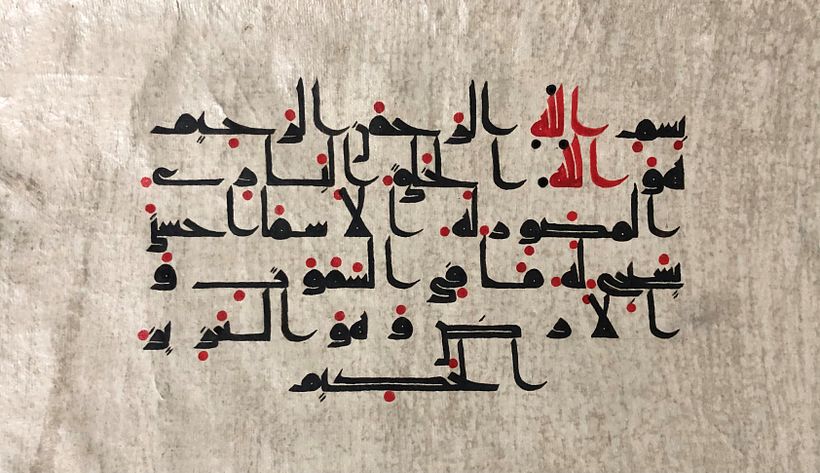 بسم الله الرحمن الرحيم
هو الله الخلق البارئ
المصور له الاسما الحسنى
يسبح له ما في السموت و
الارض و هو العزيز
الحكيم